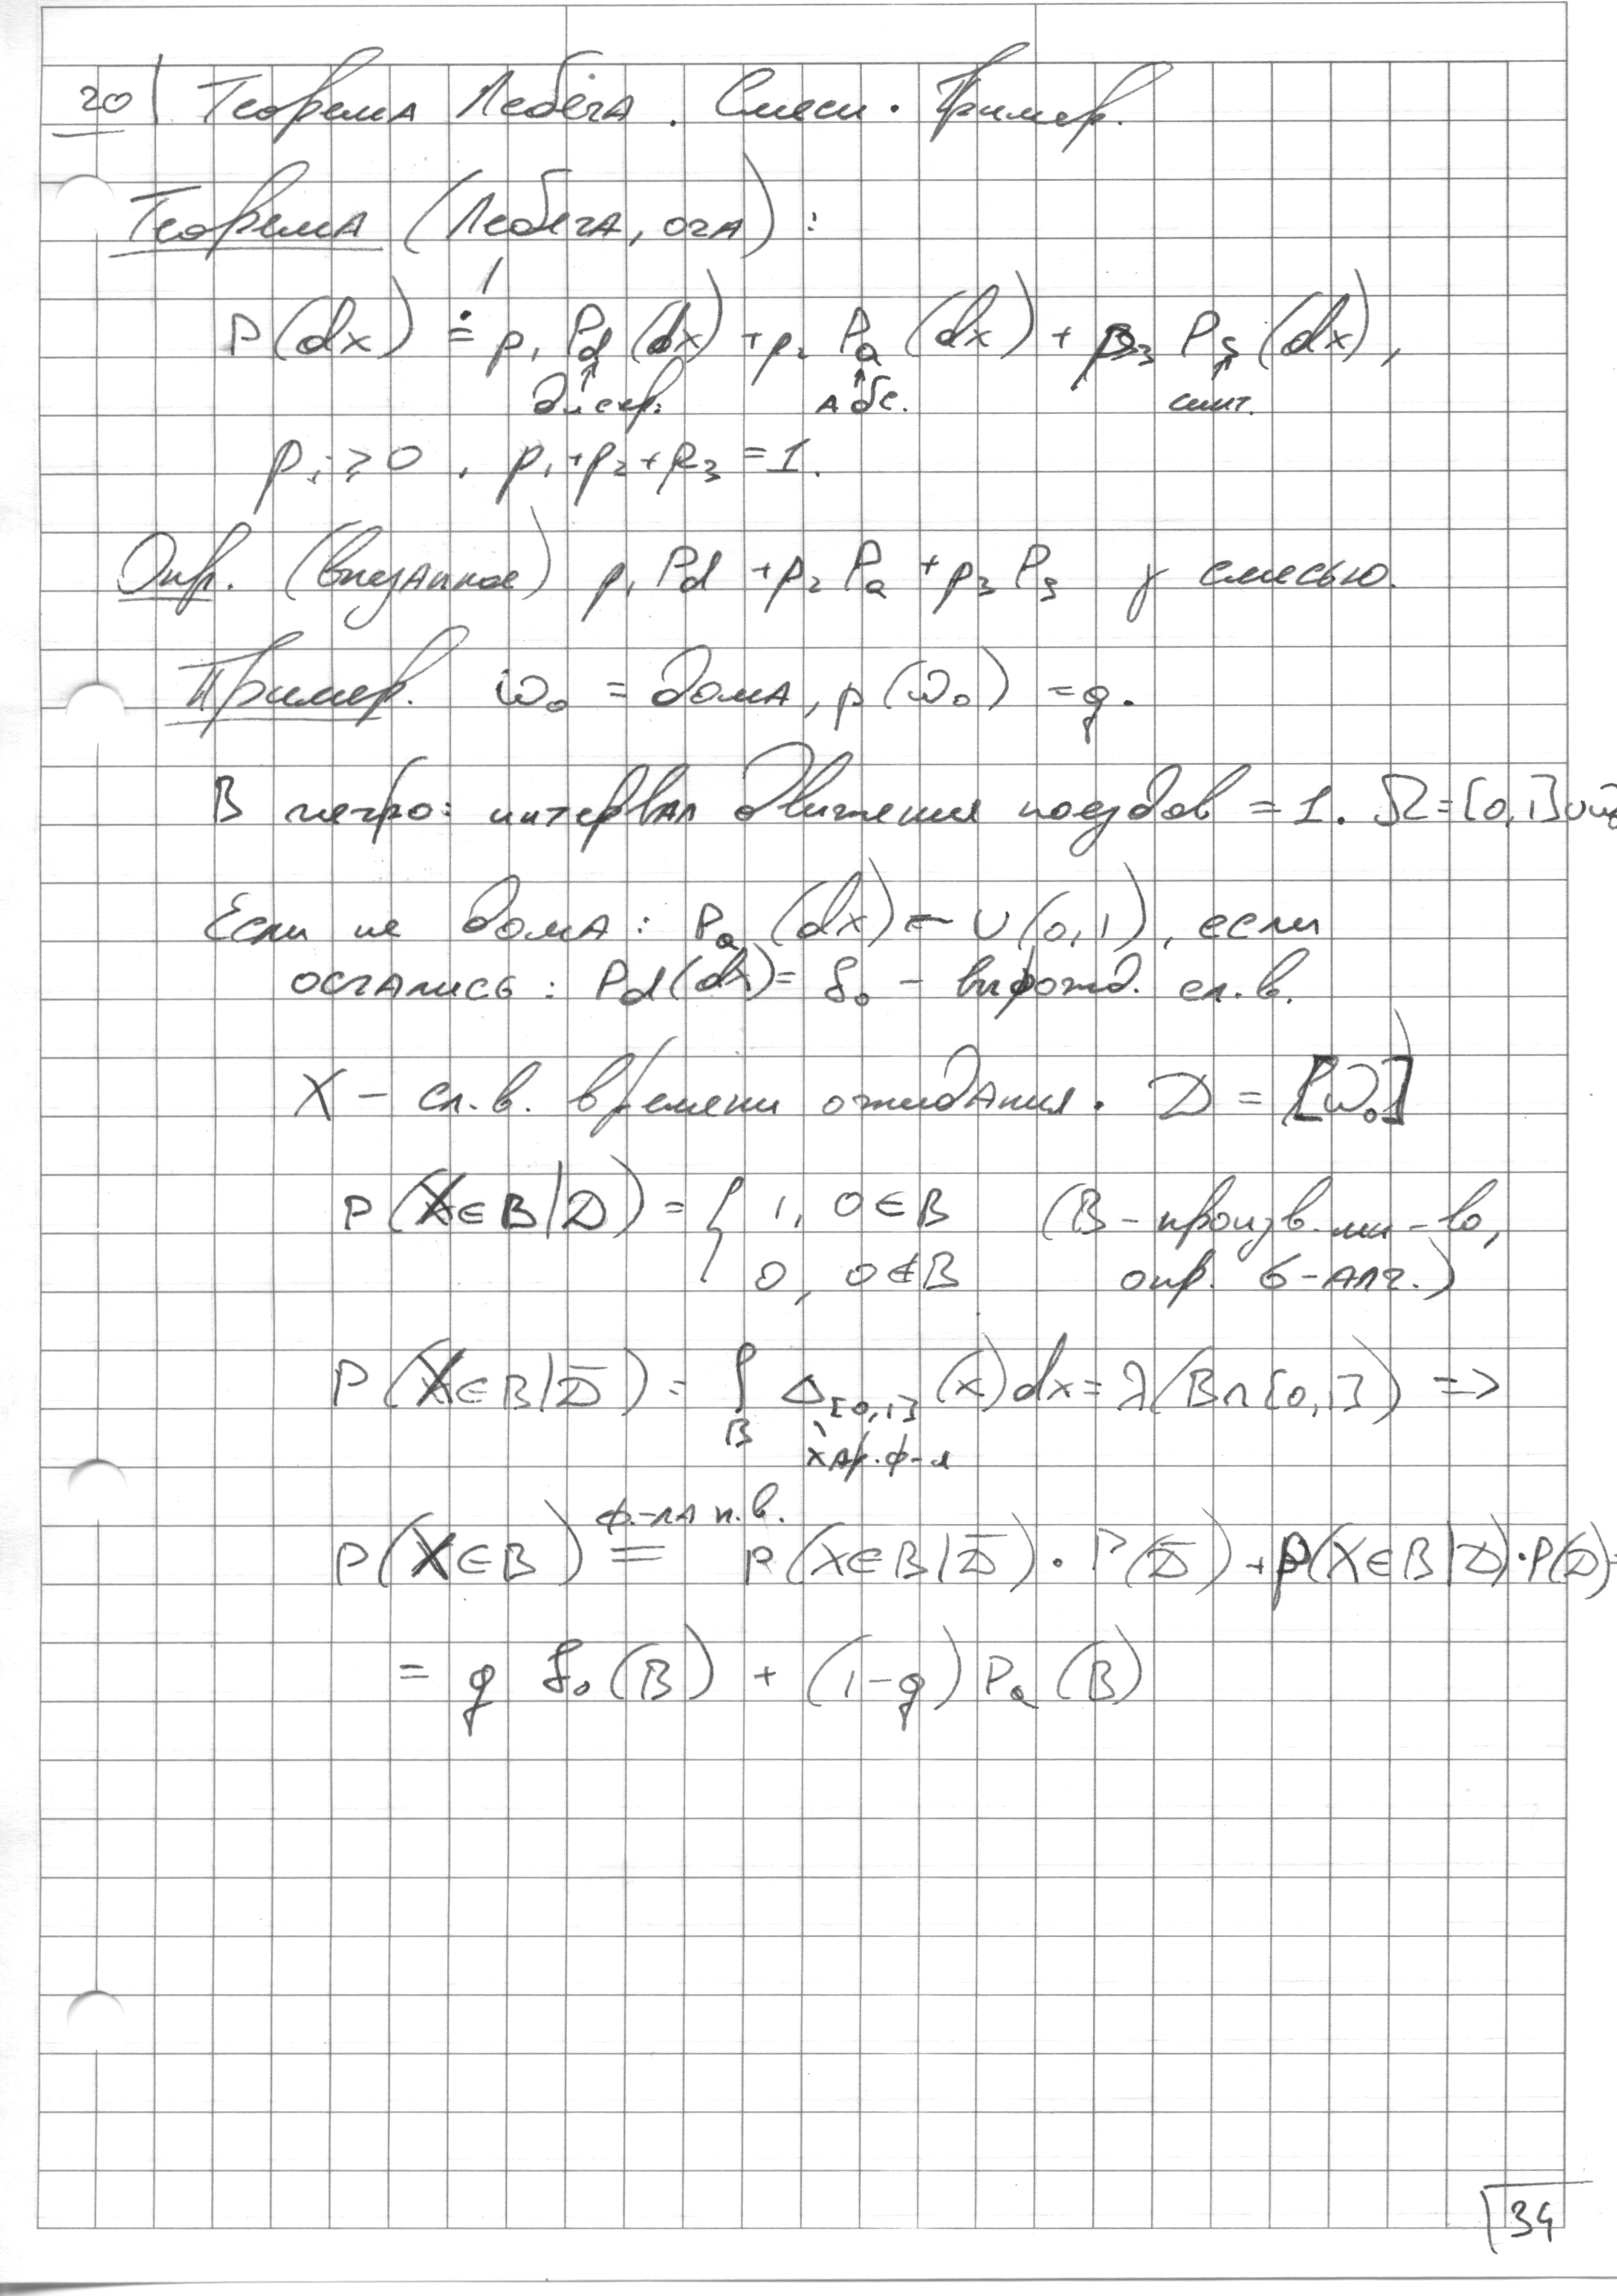 20) Теорема Лебега. Смеси. Пример.
Теорема (Лебега, ога):
P(dx) =! p₁ Pd(dx) + p₂ Pa(dx) + p₃ Ps(dx),
дискр. абс. синг.
pᵢ ≥ 0, p₁+p₂+p₃ = 1.
Опр. (внезапное) p₁ Pd + p₂ Pa + p₃ Ps γ смесью.
Пример. ω₀ = дома, p(ω₀) = q.
В метро: интервал движения поездов = 1. Ω = [0,1]∪
Если не дома: Pa(dx) = U(0,1), если
остались: Pd(dx) = δ₀ – вырожд. сл.в.
X – сл.в. времени ожидания. D = [ω₀]
P(X∈B|D) = { 1, 0∈B (B – произв. мн-во,
0, 0∉B опр. σ-алг.)
P(X∈B|D̄) = ∫ Δ[0,1](x)dx = λ(B∩[0,1]) =>
B хар. ф-я
ф-ла п.в.
P(X∈B) = P(X∈B|D̄)·P(D̄) + P(X∈B|D)·P(D) =
= q δ₀(B) + (1-q) Pa(B)
34